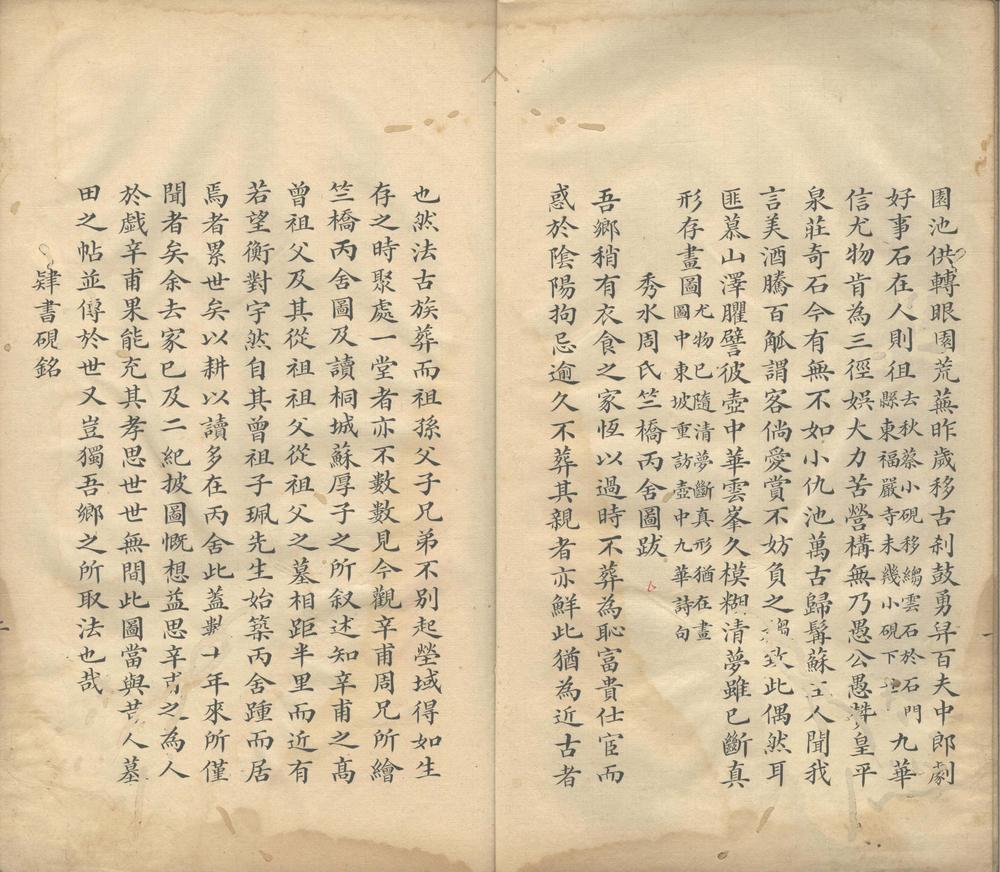 園池供轉眼園荒蕪昨歲移古刹鼓勇舁百夫中郎劇
好事石在人則徂去秋蔡小硯移縐雲石於石門
縣東福嚴寺未幾小硯下世九華
信尤物肯為三徑娯大力苦營構無乃愚公愚皇平
泉莊奇石今有無不如小仇池萬古歸髯蘇主人聞我
言美酒騰百觚謂客倘愛賞不妨負之致此偶然耳
匪慕山澤臞譬彼壺中華雲峯久模糊清夢雖已斷真
形存畫圖尤物已隨清夢斷真形猶在畫
圖中東坡重訪壺中九華詩句
秀水周氏竺橋丙舍圖跋
吾鄉稍有衣食之家恆以過時不葬為恥富貴仕宦而
惑於陰陽拘忌逾久不葬其親者亦鮮此猶為近古者
也然法古族葬而祖孫父子兄弟不別起塋域得如生
存之時聚處一堂者亦不數數見今觀辛甫周兄所繪
竺橋丙舍圖及讀桐城蘇厚子之所叙述知辛甫之高
曾祖父及其從祖祖父從祖父之墓相距半里而近有
若望衡對宇然自其曾祖子珮先生始築丙舍踵而居
焉者累世矣以耕以讀多在丙舍此蓋數十年來所僅
聞者矣余去家已及二紀披圖慨想益思辛甫之為人
於戲辛甫果能充其孝思世世無間此圖當與人墓
田之帖並傳於世又豈獨吾鄉之所取法也哉
肄書硯銘